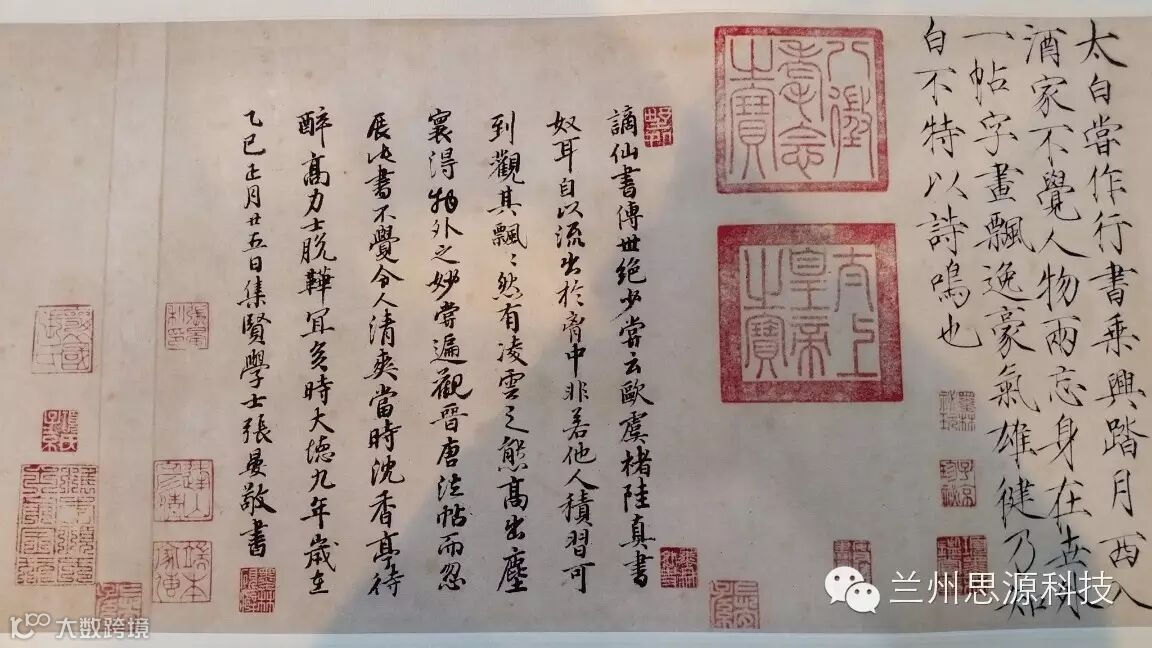 太白嘗作行書乘興踏月西入
酒家不覺人物兩忘身在世外
一帖字畫飄逸豪氣雄健乃知
白不特以詩鳴也
八徵耄念之寶
太上皇帝之寶
謫仙書傳世絕少嘗云歐虞褚陸真書
奴耳自以流出於胷中非若他人積習可
到觀其飄〻然有凌雲之態高出塵
寰得物外之妙嘗遍觀晉唐法帖而忽
展此書不覺令人清爽當時沈香亭待
醉高力士脫鞾冝矣時大德九年歲在
乙巳正月廿五日集賢學士張晏敬書
兰州思源科技
大数跨境